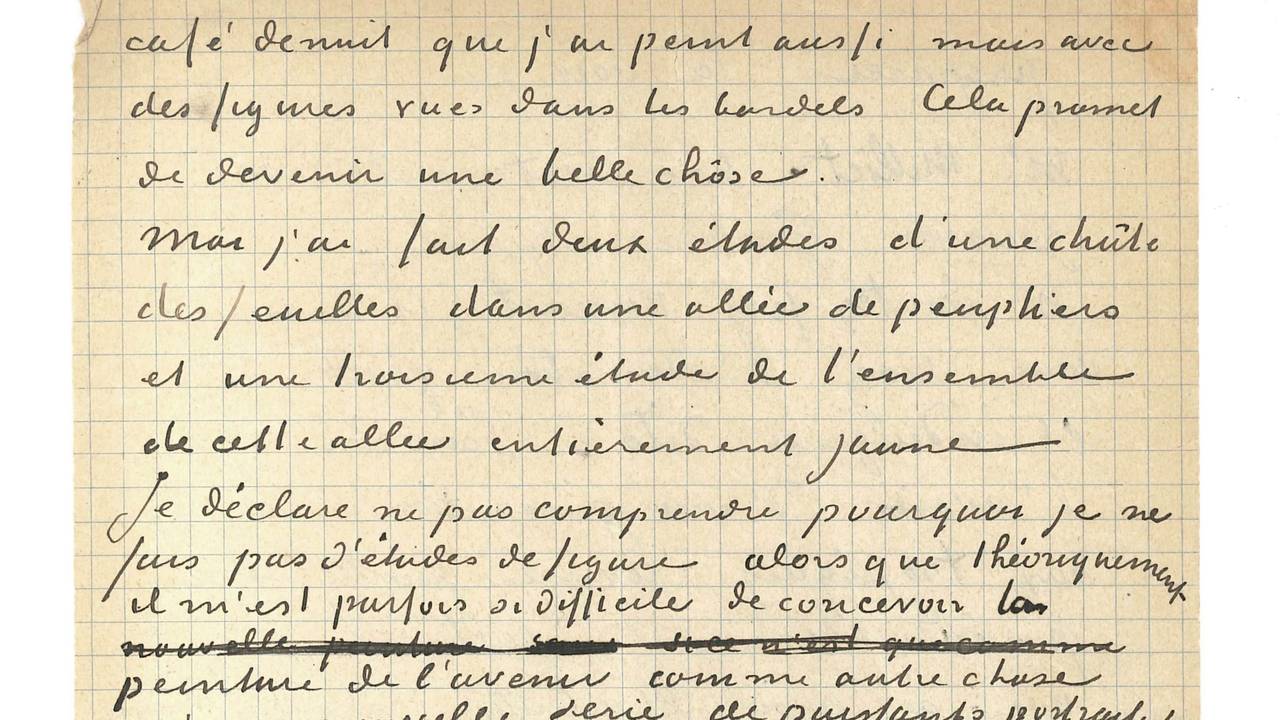 café de nuit que j'ai peint aussi mais avec
des figures vues dans les bordels Cela promet
de devenir une belle chôse.
Moi j'ai fait deux études d'une chûte
des feuilles dans une allée de peupliers
et une troisieme étude de l'ensemble
de cette allée entièrement jaune
Je déclare ne pas comprendre pourquoi je ne
fais pas d'études de figure alors que théoriquement
il m'est parfois si difficile de concevoir la
nouvelle peinture sans si ce n'est que comme
peinture de l'avenir comme autre chose
nouvelle serie de puissants portraits